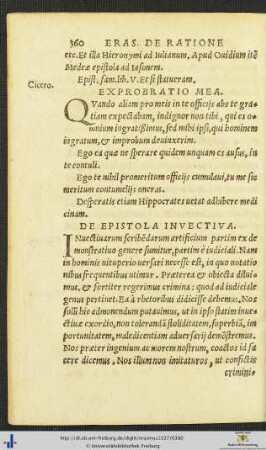 360 ERAS. DE RATIONE
etc. Et illa Hieronymi ad Iulianum. Apud Ouidium itē
Medeæ epistola ad Iasonem.
Epist. fam. lib. V. Et si statueram.
Cicero.
EXPROBRATIO MEA.
QVando aliam pro meis in te officijs abs te gra-
tiam expectabam, indignor non tibi, qui es o-
mnium ingratissimus, sed mihi ipsi, qui hominem
ingratum, & improbum deuinxerim.
Ego ea quæ ne sperare quidem unquam es ausus, in
te contuli.
Ego te nihil promeritum officijs cumulaui, tu me sic
meritum contumelijs oneras.
Desperatis etiam Hippocrates uetat adhibere medi
cinam.
DE EPISTOLA INVECTIVA.
INuectiuarum scribēdarum artificium partim ex de
monstratiuo genere sumitur, partim è iudiciali. Nam
in hominis uituperio uersari necesse est, in quo notatio
nibus frequentibus utimur. Præterea & obiecta dilui-
mus, & fortiter regerimus crimina: quod ad iudiciale
genus pertinet. Ea à rhetoribus didicisse debemus. Nos
solū hic admonendum putauimus, ut in ipso statim inue-
ctiuæ exordio, non tolerandā stoliditatem, superbiā, im
portunitatem, maledicentiam aduersarij demōstremus.
Nos præter ingenium ac morem nostrum, coactos id fa
cere dicemus. Nos illum non imitaturos, ut confictis
crimini-
http://dl.ub.uni-freiburg.de/diglit/erasmus1537/0390
© Universitätsbibliothek Freiburg